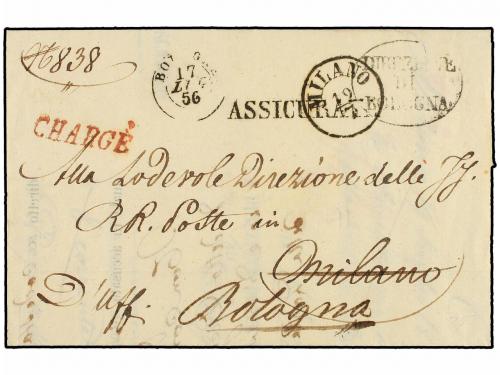 N 838
BOLOGNA
17
LUG
56
MILANO
19
7
DIREZIONE
DI
BOLOGNA.
ASSICURATA
CHARGÉ
Alla Lodevole Direzione delle II.
RR. Poste in
Milano
D'uff. Bologna